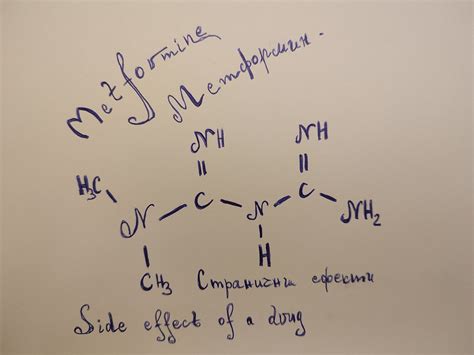 Metformine
Метформин.
NH NH
H₃C
N C N C NH₂
H
CH₃ Странични ефекти
Side effect of a drug